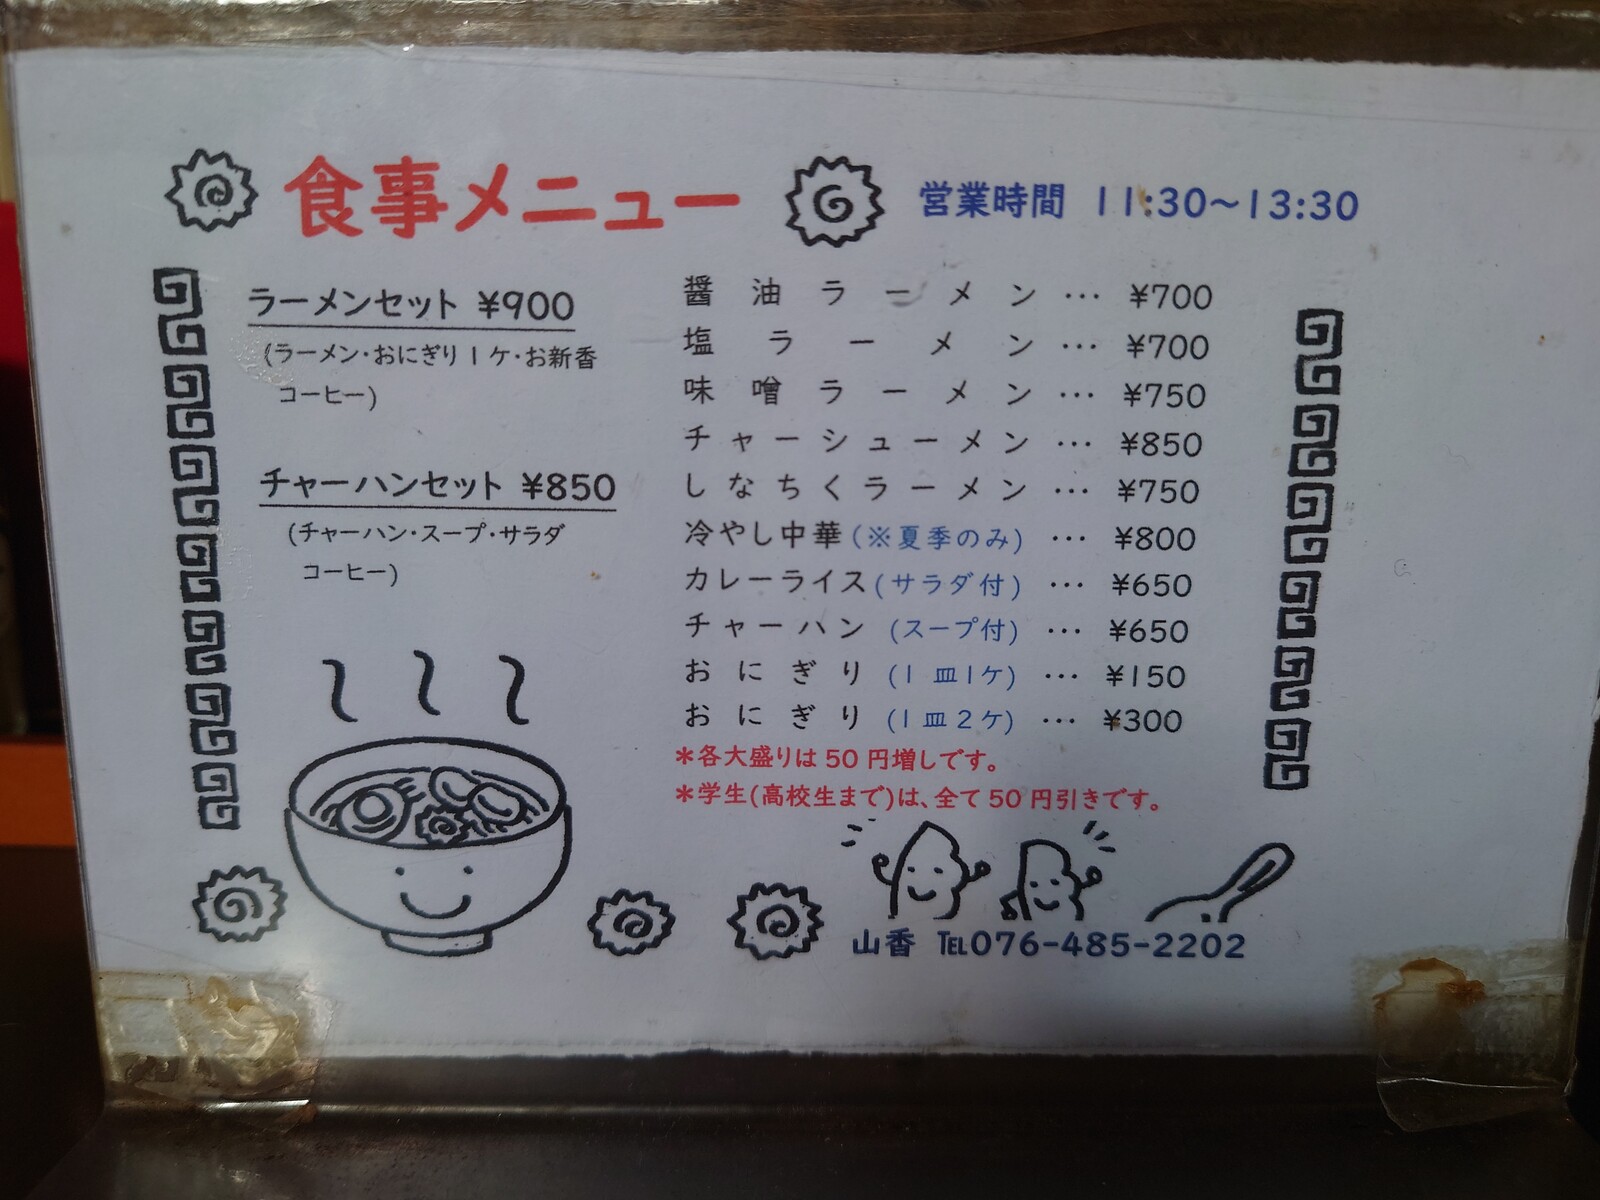 食事メニュー
営業時間 11:30～13:30
ラーメンセット ¥900
(ラーメン・おにぎり1ケ・お新香
コーヒー)
チャーハンセット ¥850
(チャーハン・スープ・サラダ
コーヒー)
醤油ラーメン … ¥700
塩ラーメン … ¥700
味噌ラーメン … ¥750
チャーシューメン … ¥850
しなちくラーメン … ¥750
冷やし中華(※夏季のみ) … ¥800
カレーライス(サラダ付) … ¥650
チャーハン(スープ付) … ¥650
おにぎり(1皿1ケ) … ¥150
おにぎり(1皿2ケ) … ¥300
＊各大盛りは50円増しです。
＊学生(高校生まで)は、全て50円引きです。
山香 ℡076-485-2202